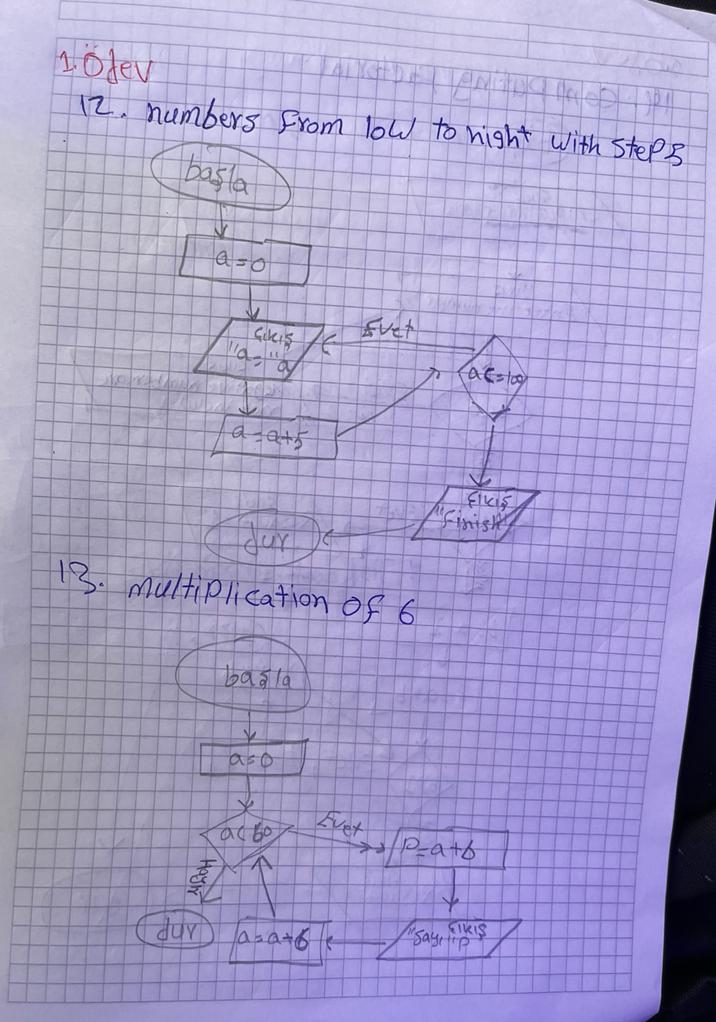 1.Ödev
12. numbers from low to hight with step 5
başla
a=0
Çıkış
"a=" a
Evet
a<=100
a=a+5
Çıkış
"Finish"
dur
13. multiplication of 6
başla
a=0
a<60
Evet
P=a+6
Hayır
Çıkış
"Sayı" P
a=a+6
dur